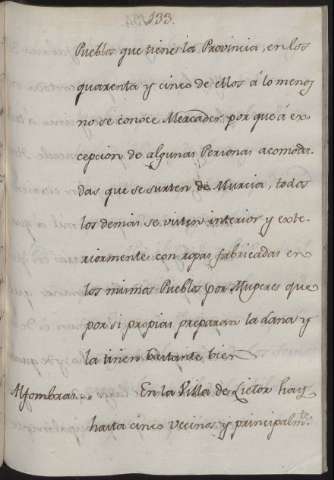 133.
Pueblos que tiene la Provincia, en los
quarenta y cinco de ellos á lo menos
no se conoce Mercader por que á ex-
cepcion de algunas Personas acomoda-
das que se surten de Murcia, todos
los demas se visten interior y exte-
riormente con ropas fabricadas en
los mismos Pueblos por Mugeres que
por si propias preparan la Lana y
la tinen bastante bien
Alfombras... En la Villa de Lietor hay
hasta cinco Vecinos y principalmte